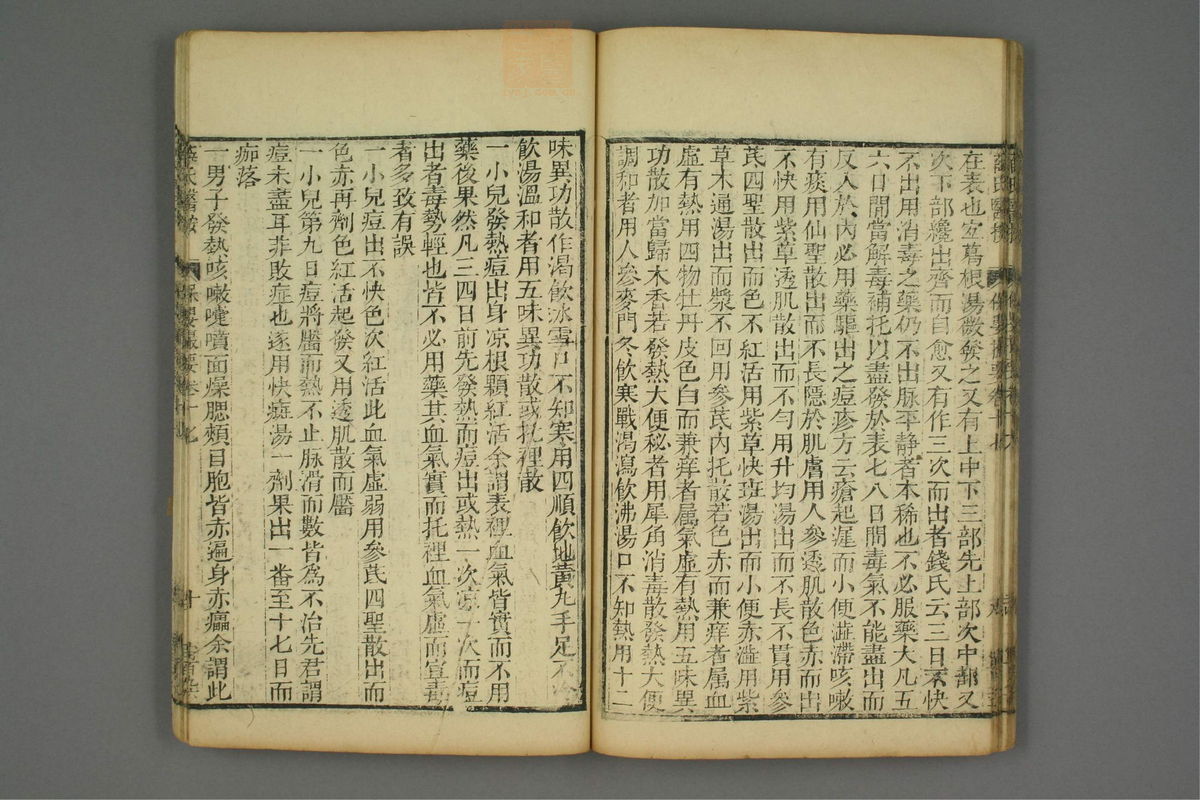 在表也宜葛根湯微發之又有上中下三部先上部次中部又
次下部纔出齊而自愈又有作三次而出者錢氏云三日不快
不出用消毒之藥仍不出脉平静者本稀也不必服藥大凡五
六日間當解毒補托以盡發於表七八日間毒氣不能盡出而
反入於内必用藥驅出之痘疹方云瘡起遲而小便澁滯咳嗽
有痰用仙聖散出而不長隱於肌膚用人參透肌散色赤而出
不快用紫草透肌散出而不勻用升均湯出而不長不貫用參
芪四聖散出而色不紅活用紫草快班湯出而小便赤澁用紫
草木通湯出而漿不回用參芪内托散若色赤而兼痒者属血
虛有熱用四物牡丹皮色白而兼痒者属氣虛有熱用五味異
功散加當歸木香若發熱大便秘者用犀角消毒散發熱大便
調和者用人參麥門冬飲寒戰渴瀉飲沸湯口不知熱用十二
味異功散作渴飲冰雪口不知寒用四順飲地黃丸手足不
飲湯溫和者用五味異功散或托裡散
一小兒發熱痘出身凉根顆紅活余謂表裡血氣皆實而不用
藥後果然凡三四日前先發熱而痘出或熱一次凉一次而痘
出者毒勢輕也皆不必用藥其血氣實而托裡血氣虛而宣毒
者多致有誤
一小兒痘出不快色次紅活此血氣虛弱用參芪四聖散出而
色赤再劑色紅活起發又用透肌散而靨
一小兒第九日痘將靨而熱不止脉滑而數皆為不治先君謂
痘未盡耳非敗症也遂用快癍湯一劑果出一番至十七日而
痂落
一男子發熱咳嗽嚏噴面燥腮頰目胞皆赤遍身赤癟余謂此
薛氏醫按 保嬰撮要卷十七 十